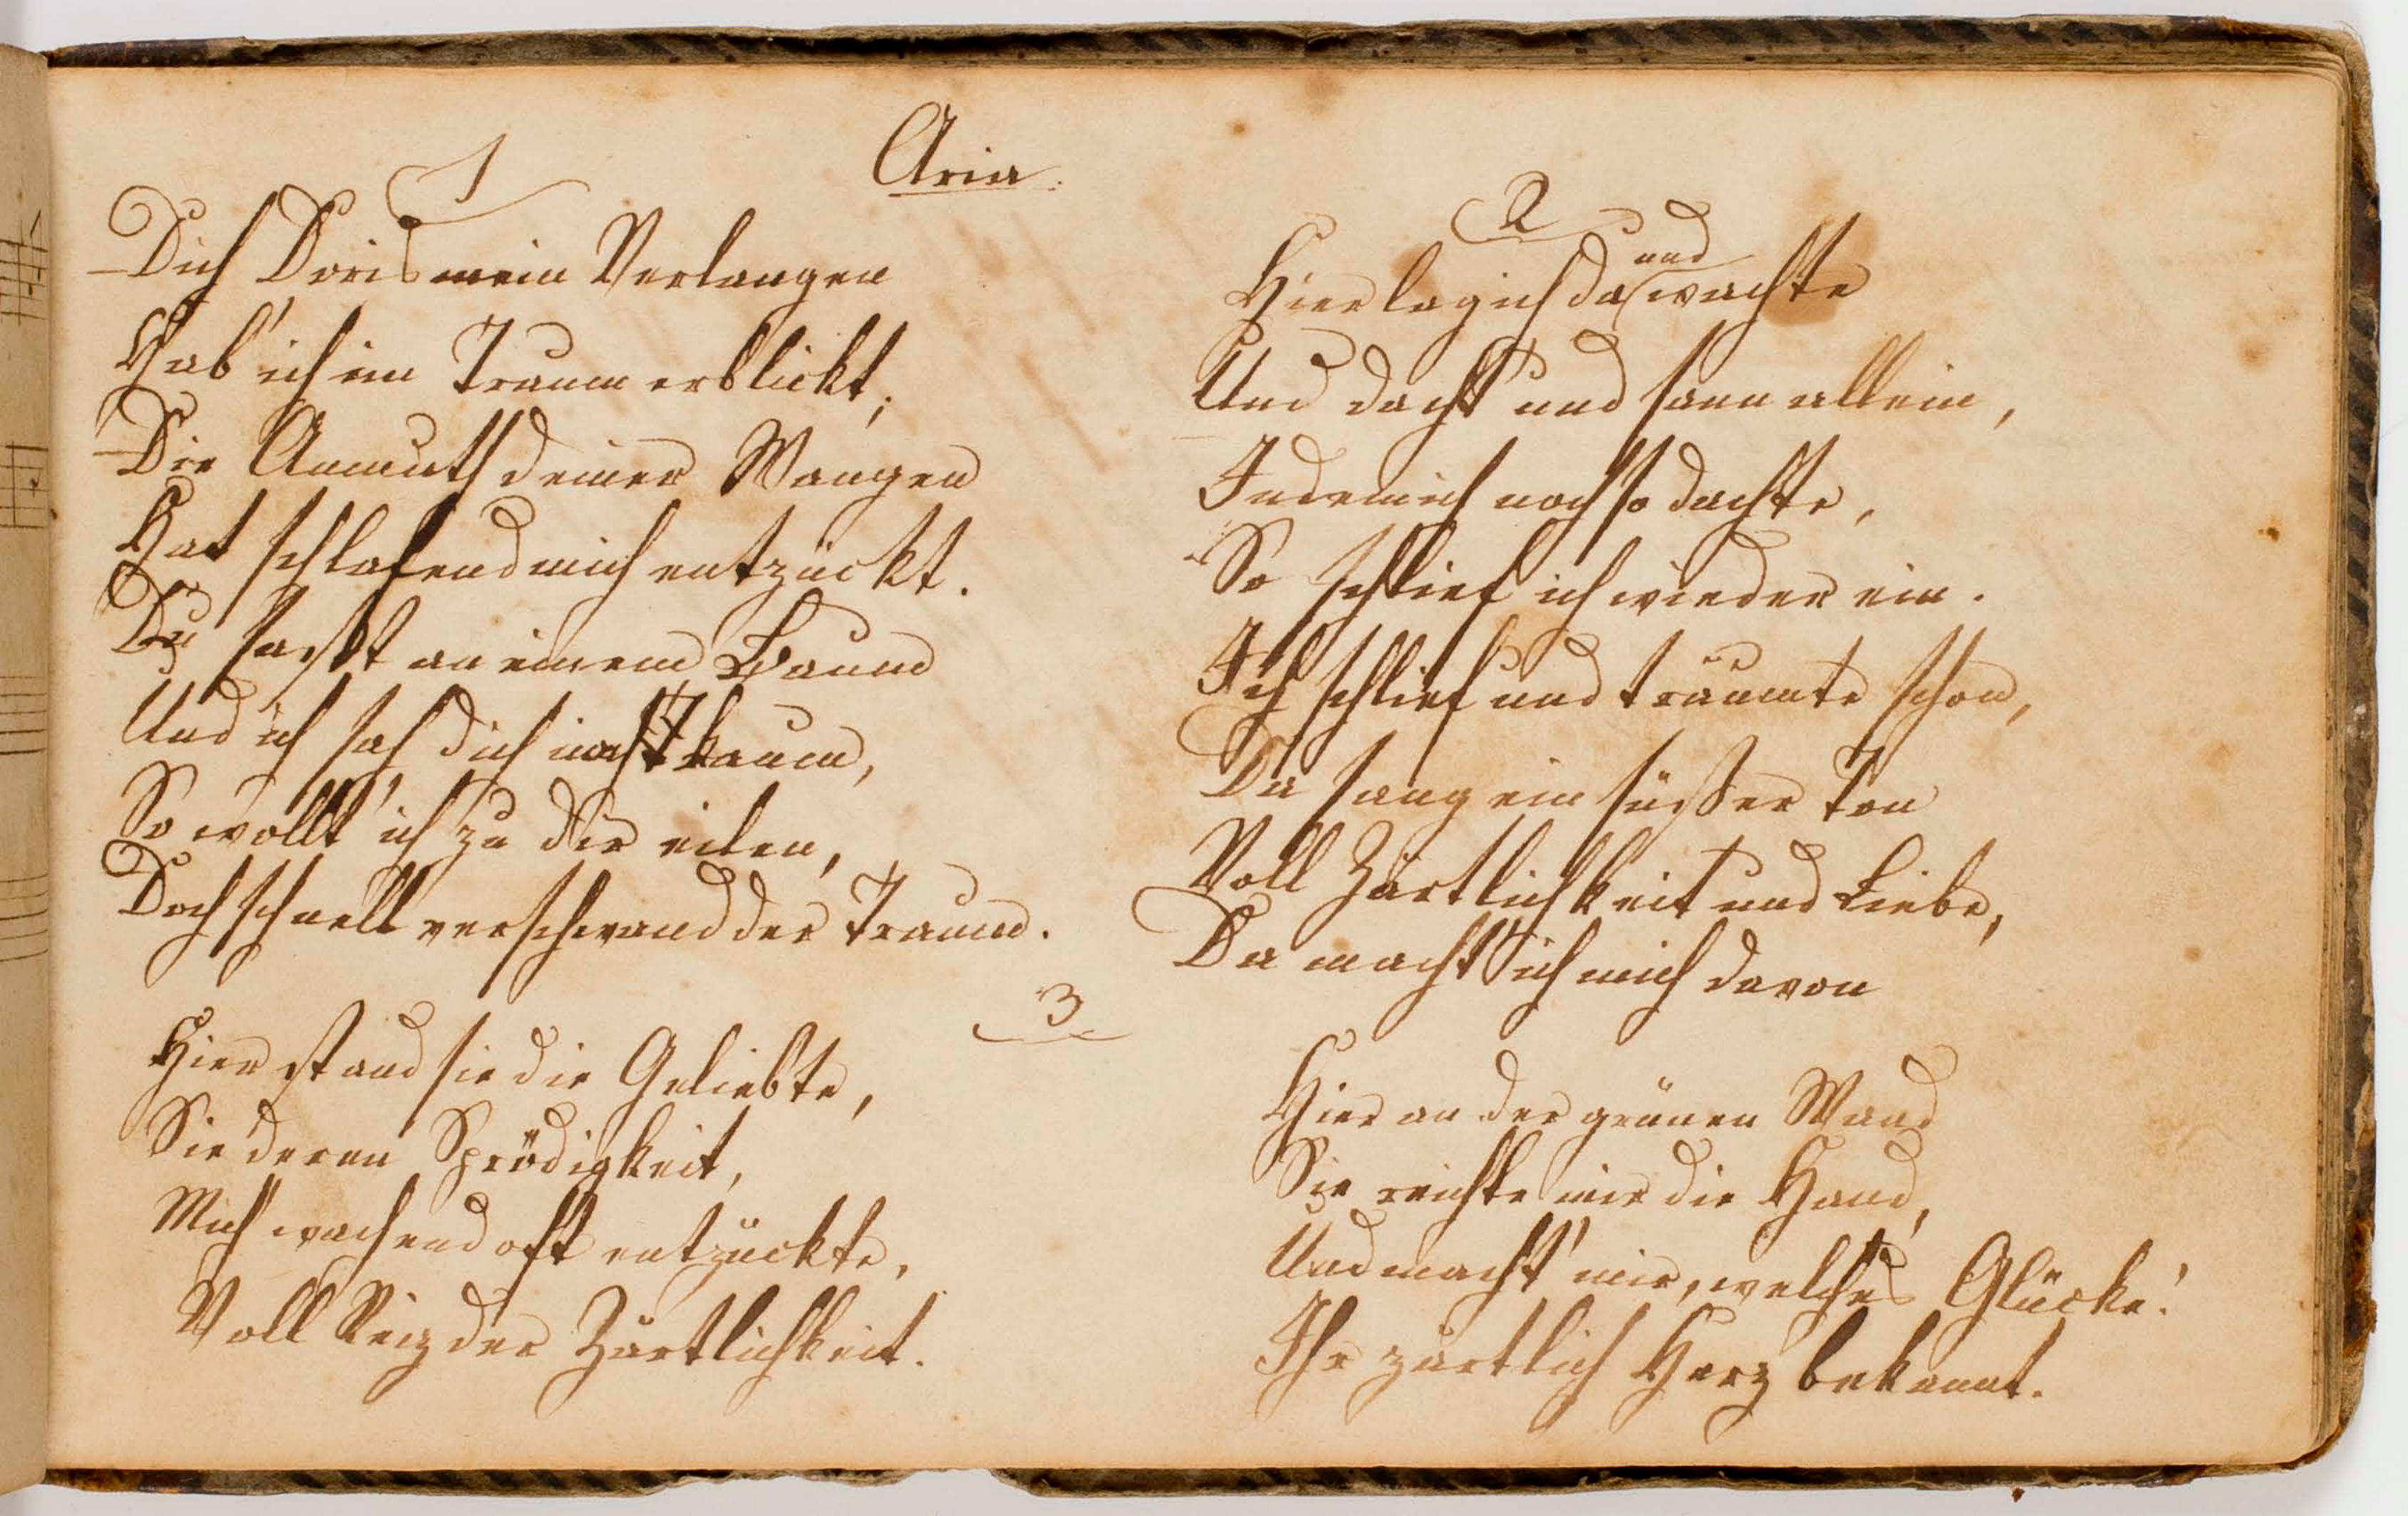 Aria.
1
Dich Doris mein Verlangen
Hab' ich im Traum erblickt;
Die Anmuth deiner Wangen
Hat schlafend mich entzückt.
Du saßt an einem Baum
Und ich sah dich noch kaum,
So wollt' ich zu dir eilen,
Doch schnell verschwand der Traum.
2
Hier lag ich da und wachte
Und dacht' und sann allein,
Indem ich noch so dachte,
So schlief ich wieder ein.
Ich schlief und träumte schon,
Da sang ein süßer Ton
Voll Zärtlichkeit und Liebe,
Da macht' ich mich davon
3
Hier stand sie die Geliebte,
Sie deren Sprödigkeit,
Mich wachend oft entzückte,
Voll Reiz der Zärtlichkeit.
Hier an der grünen Wand
Sie reichte mir die Hand,
Und macht' mir, welches Glücke!
Ihr zärtlich Herz bekannt.